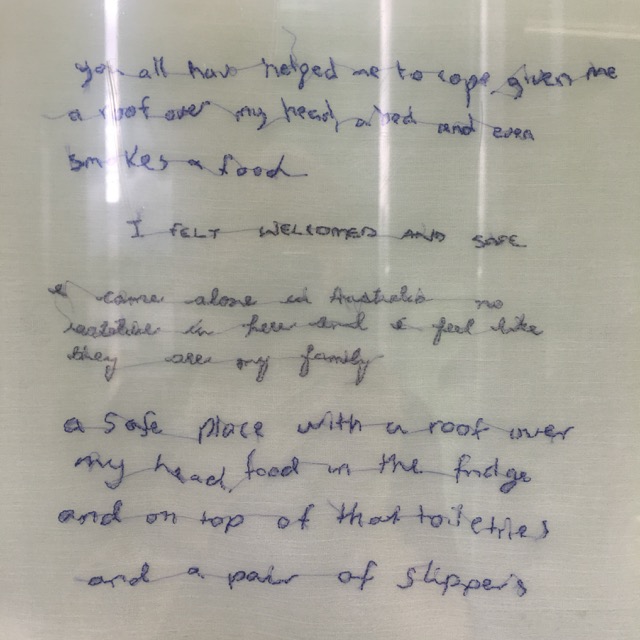 you all have helped me to cope, given me
a roof over my head, a bed and even
smokes & food
I FELT WELCOMED AND SAFE
I came alone in Australia no
relative in here and I feel like
they are my family
a safe place with a roof over
my head, food in the fridge
and on top of that toiletries
and a pair of slippers